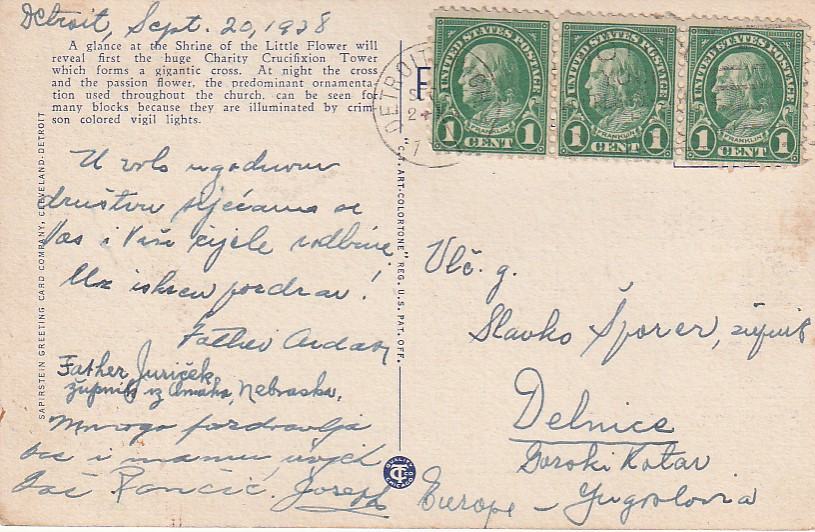 Detroit, Sept. 20, 1938
A glance at the Shrine of the Little Flower will
reveal first the huge Charity Crucifixion Tower
which forms a gigantic cross. At night the cross
and the passion flower, the predominant ornamenta-
tion used throughout the church, can be seen for
many blocks because they are illuminated by crim-
son colored vigil lights.
U vrlo ugodnom
društvu sjećamo se
Vas i Vaše cijele rodbine
Uz iskren pozdrav!
Father
Father Juriček
župnik iz Omaha, Nebraska,
Mnogo pozdravlja
vas i mamu uvijek
Vaš Pančić Joseph
SAPIRSTEIN GREETING CARD COMPANY, CLEVELAND-DETROIT
"C.T. ART-COLORTONE" REG. U.S. PAT. OFF.
QUALITY
CT CO
CHICAGO
DETROIT
UNITED STATES POSTAGE
FRANKLIN
1 CENT 1
UNITED STATES POSTAGE
FRANKLIN
1 CENT 1
UNITED STATES POSTAGE
FRANKLIN
1 CENT 1
Vlč. g.
Slavko Šporer, župnik
Delnice
Gorski Kotar
Europe - Yugoslovia